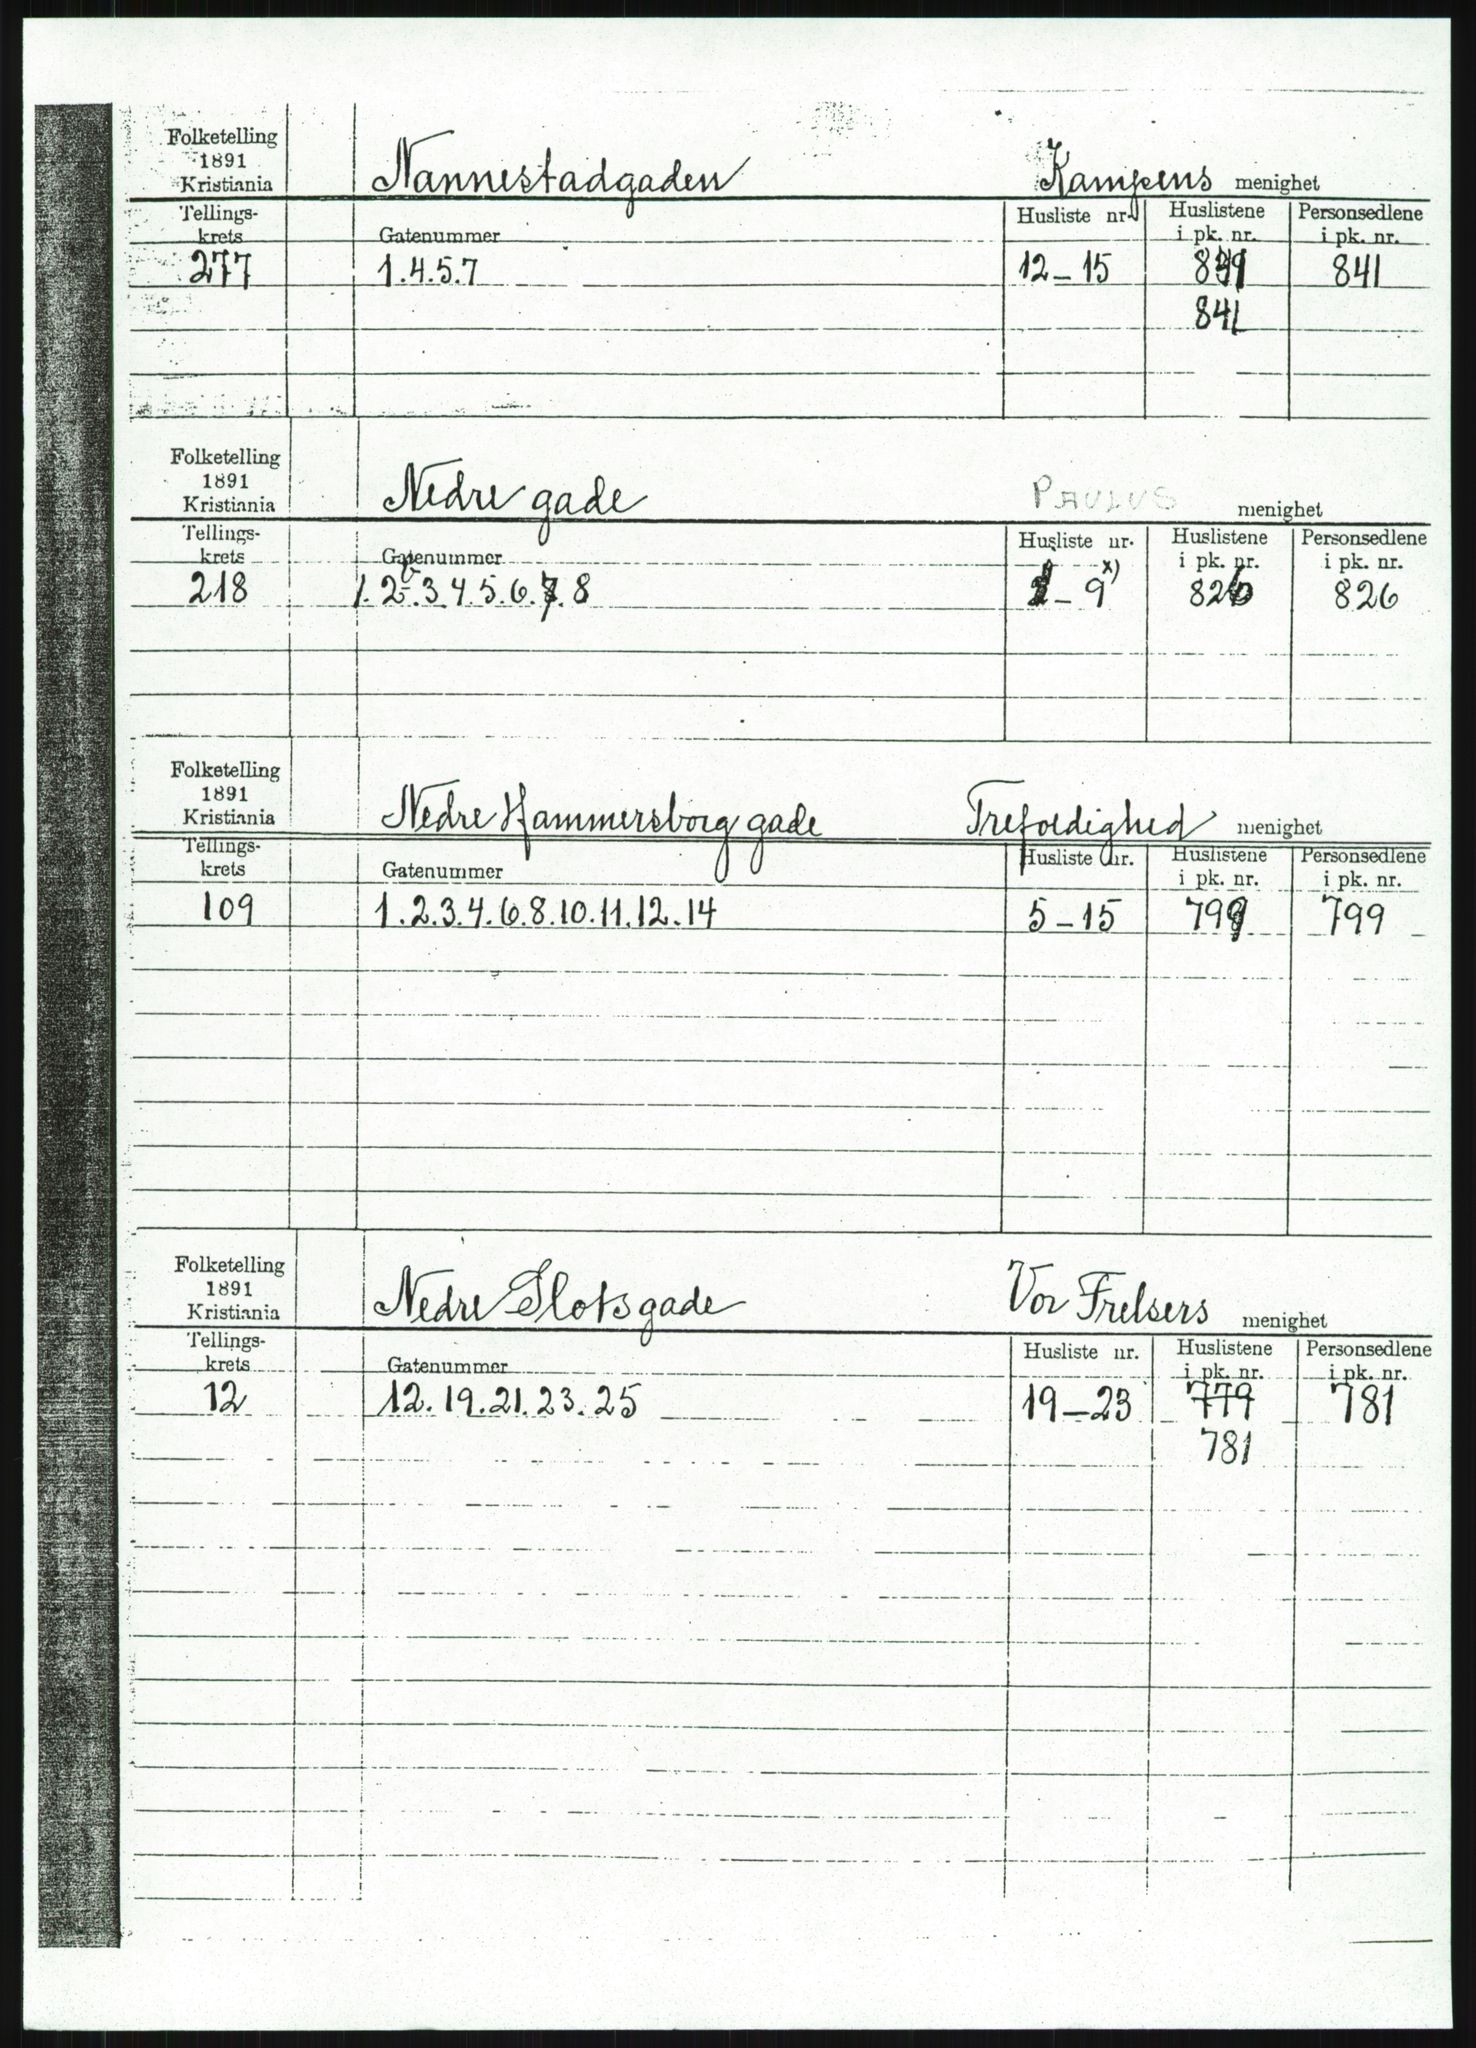 Folketelling
1891
Kristiania Nannestadgaden Kampens menighet
Tellings-krets Gatenummer Husliste nr. Huslistene i pk. nr. Personsedlene i pk. nr.
277 1.4.5.7 12-15 841
841
Folketelling
1891
Kristiania Nedre gade PAULUS menighet
Tellings-krets Gatenummer Husliste nr. Huslistene i pk. nr. Personsedlene i pk. nr.
218 1.2b.3.4.5.6.7.8 1-9x) 826 826
Folketelling
1891
Kristiania Nedre Hammersborg gade Trefoldighed menighet
Tellings-krets Gatenummer Husliste nr. Huslistene i pk. nr. Personsedlene i pk. nr.
109 1.2.3.4.6.8.10.11.12.14 5-15 799 799
Folketelling
1891
Kristiania Nedre Slotsgade Vor Frelsers menighet
Tellings-krets Gatenummer Husliste nr. Huslistene i pk. nr. Personsedlene i pk. nr.
12 12.19.21.23.25 19-23 779 781
781